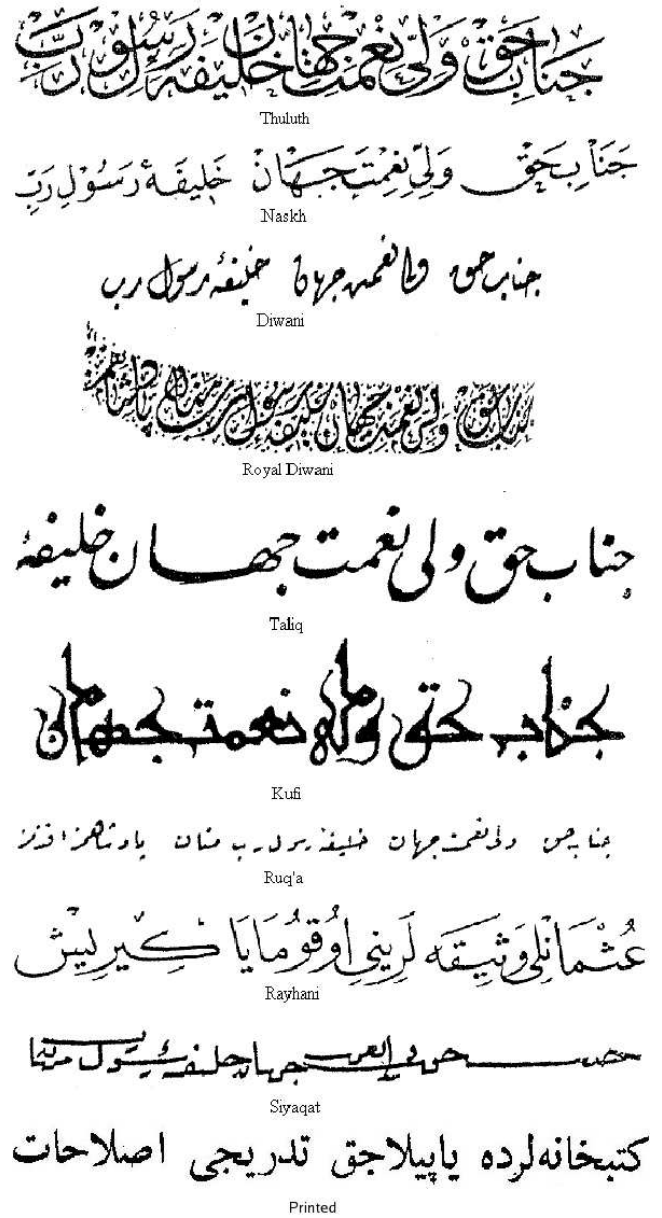 جَنَابِ حَقّ وَلِيِّ نِعْمَتِ جِهَان خَلِيفَهٔ رَسُولِ رَبِّ
Thuluth
جَنَابِ حَقّ وَلِيِّ نِعْمَتِ جَهَانْ خَلِيفَهٔ رَسُولِ رَبِّ
Naskh
جناب حق ولی نعمت جهان خلیفهٔ رسول رب
Diwani
جناب حق ولی نعمت جهان خلیفهٔ رسول رب منان پادشاهمز
Royal Diwani
جناب حق ولی نعمت جهان خلیفهٔ
Taliq
جناب حق ولی نعمت جهان
Kufi
جناب حق ولی نعمت جهان خلیفهٔ رسول رب منان پادشاهمز افندمز
Ruq'a
عُثْمَانْلِی وَثِيقَه لَرِينِي اوُقوُمَايَا كِيرِيش
Rayhani
جهان خلیفهٔ رسول منان
Siyaqat
كتبخانه لرده ياپيلاجق تدريجى اصلاحات
Printed